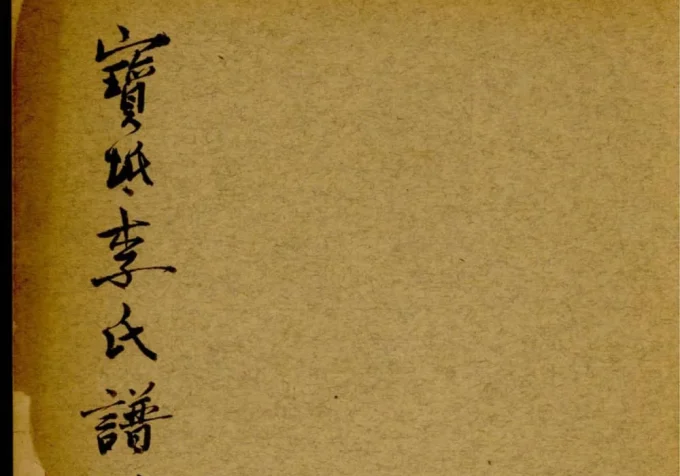 寶坻李氏譜